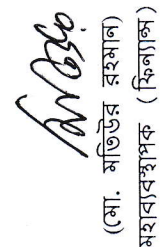 (মো. মতিউর রহমান)
মহাব্যবস্থাপক (ফিন্যান্স)